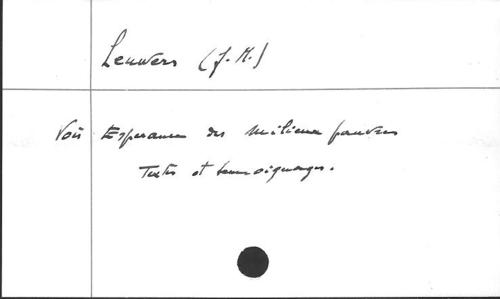 Leuwers (J.M.)
Voir Espérance des milieux pauvres
Textes et témoignages.